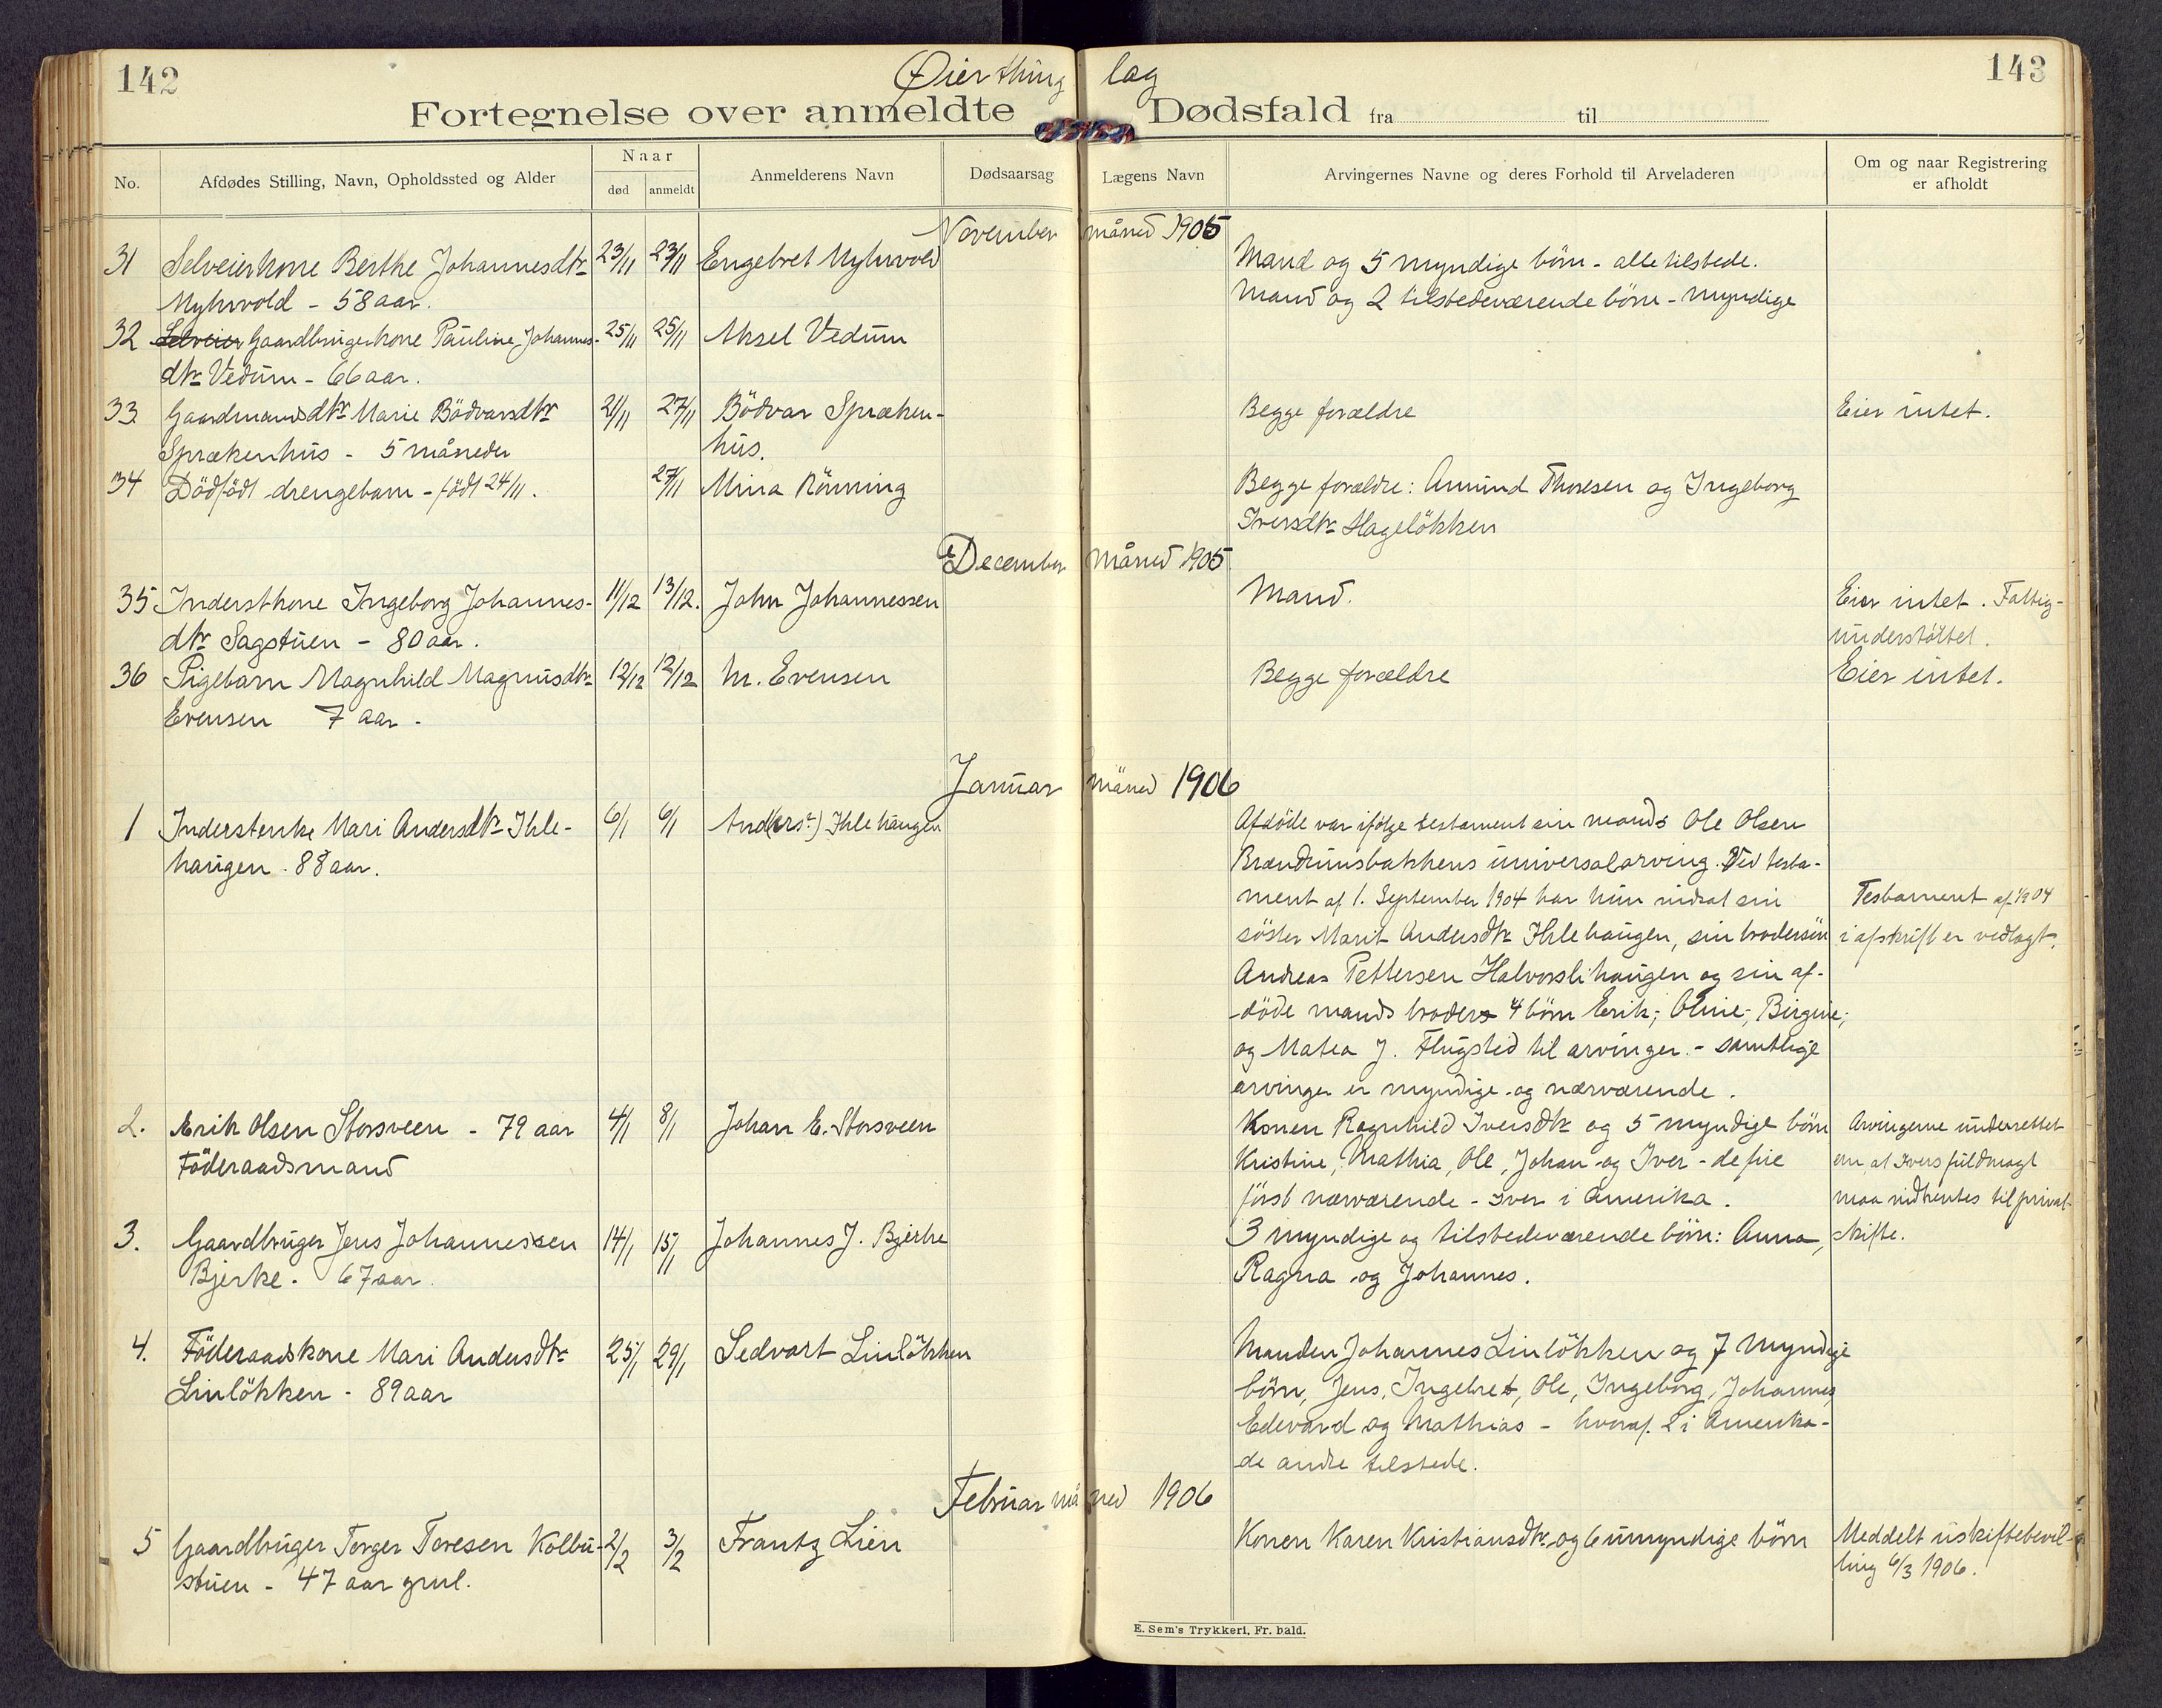 142
Øierthing lag
143
Fortegnelse over anmeldte Dødsfald fra til
No.
Afdødes Stilling, Navn, Opholdssted og Alder
Naar
død
anmeldt
Anmelderens Navn
Dødsaarsag
Lægens Navn
Arvingernes Navne og deres Forhold til Arveladeren
Om og naar Registrering
er afholdt
November måned 1905
31 Selveierkone Berthe Johannesdtr 23/11 23/11 Engebret Myhrvold Mand og 5 myndige börn - alle tilstede.
Myhrvold - 58 aar. Mand og 2 tilstedeværende börn - myndige
32 Selveier Gaardbrugerkone Pauline Johannes- 25/11 25/11 Aksel Vedum
dtr Vedum - 66 aar.
33 Gaardmandsdtr Marie Bödvarsdtr 21/11 27/11 Bödvar Spræken- Begge forældre Eier intet.
Sprækenhus - 5 måneder hus.
34 Dödfödt drengebarn - födt 24/11. 27/11 Mina Rönning Begge forældre: Amund Thoresen og Ingeborg
Iversdtr Hagelökken
December måned 1905
35 Inderstkone Ingeborg Johannes- 11/12 13/12. John Johannessen Mand. Eier intet. Fattig-
dtr Sagstuen - 80 aar. understöttet.
36 Pigebarn Magnhild Magnusdtr 12/12 12/12 M. Evensen Begge forældre Eier intet.
Evensen 7 aar.
Januar måned 1906
1 Inderstenke Mari Andersdtr Ihle- 6/1 6/1 And(ers?) Ihlehaugen Afdöde var ifölge testament sin mands Ole Olsen
haugen. 88 aar. Brændumsbakkens universalarving. Ved testa-
ment af 1. September 1904 har hun indsat sin Testamentet af 1/9 04
söster Marit Andersdtr Ihlehaugen, sin brodersön i afskrift er vedlagt.
Andreas Pettersen Halvorslihaugen og sin af-
döde mands broders 4 börn Erik; Oline; Birgine;
og Matea J. Flugstid til arvinger. - samtlige
arvinger er myndige og nærværende.
2. Erik Olsen Storsveen - 79 aar 4/1 8/1 Johan E. Storsveen Konen Ragnhild Iversdtr og 5 myndige börn Arvingerne underrettet
Föderaadsmand Kristine, Mathia, Ole, Johan og Iver - de fire om, at Ivers fuldmagt
först nærværende - Iver i Amerika. maa indhentes til privat-
3. Gaardbruger Jens Johannessen 14/1 15/1 Johannes J. Bjerke 3 myndige og tilstedeværende börn: Anna, skifte.
Bjerke. 67 aar. Ragna og Johannes.
4. Föderaadskone Mari Andersdtr 25/1 29/1 Sedvart Linlökken Manden Johannes Linlökken og 7 myndige
Linlökken - 89 aar börn, Jens, Ingebret, Ole, Ingeborg, Johannes,
Edevard og Mathias - hvoraf 2 i Amerika -
de andre tilstede.
Februar måned 1906
5 Gaardbruger Torger Toresen Kolbu- 2/2 3/2 Frantz Lien Konen Karen Kristiansdtr og 6 umyndige börn Meddelt uskiftebevil-
stuen - 47 aar gml. ling 6/3 1906.
E. Sem's Trykkeri, Fr.hald.